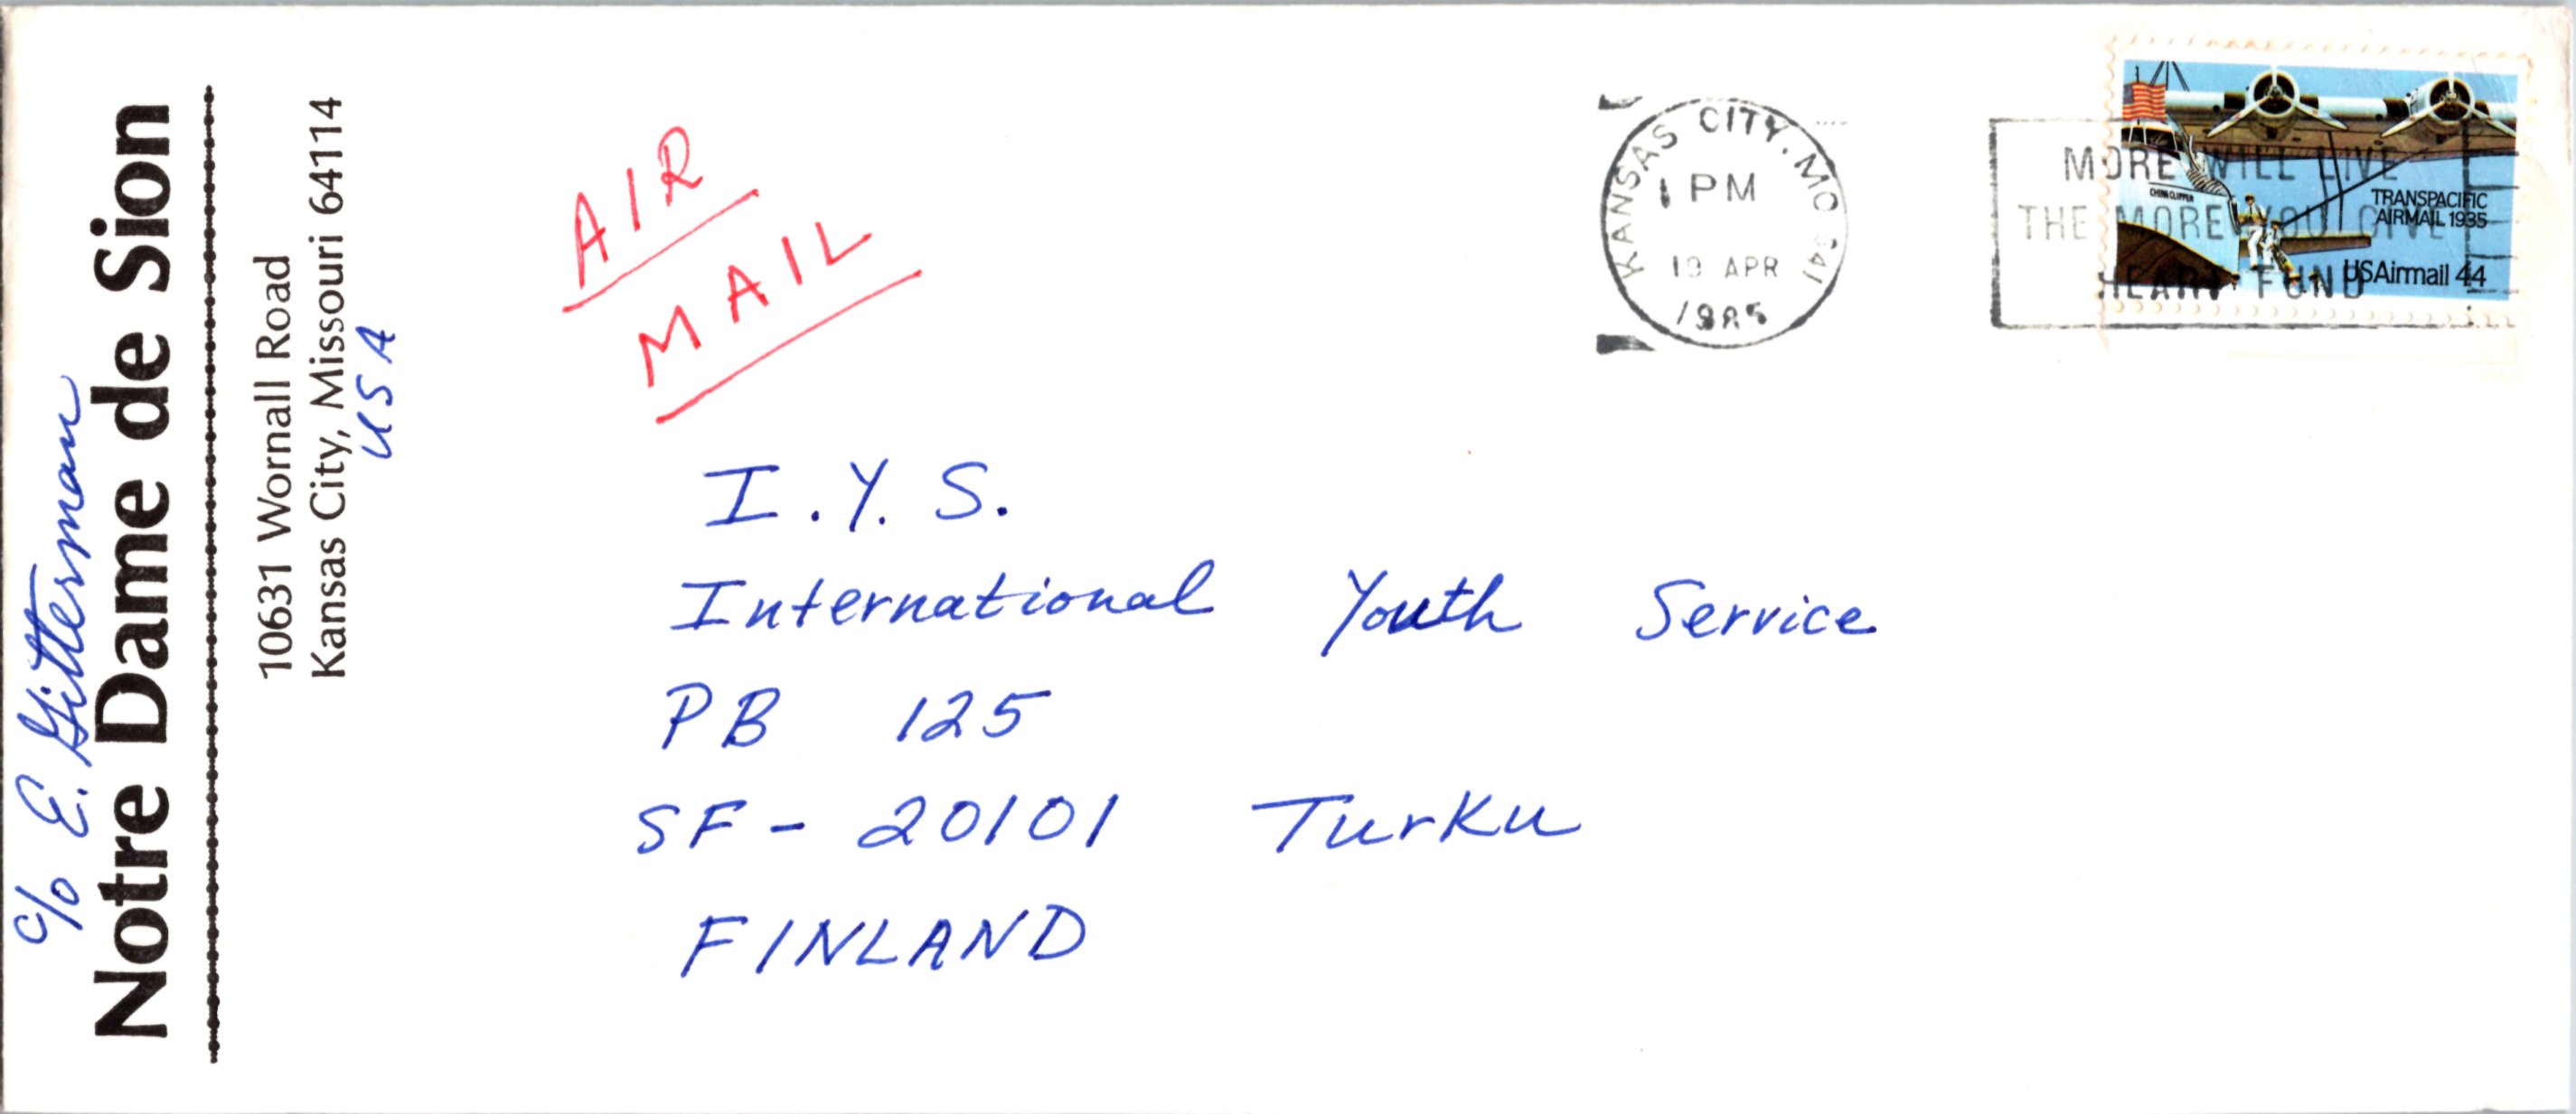 c/o E. Gitterman
Notre Dame de Sion
10631 Wornall Road
Kansas City, Missouri 64114
USA
AIR
MAIL
KANSAS CITY, MO 641
1 PM
19 APR
1985
MORE WILL LIVE
THE MORE YOU GIVE
HEART FUND
CHINA CLIPPER
TRANSPACIFIC
AIRMAIL 1935
USAirmail 44
I.Y.S.
International Youth Service
PB 125
SF-20101 Turku
FINLAND